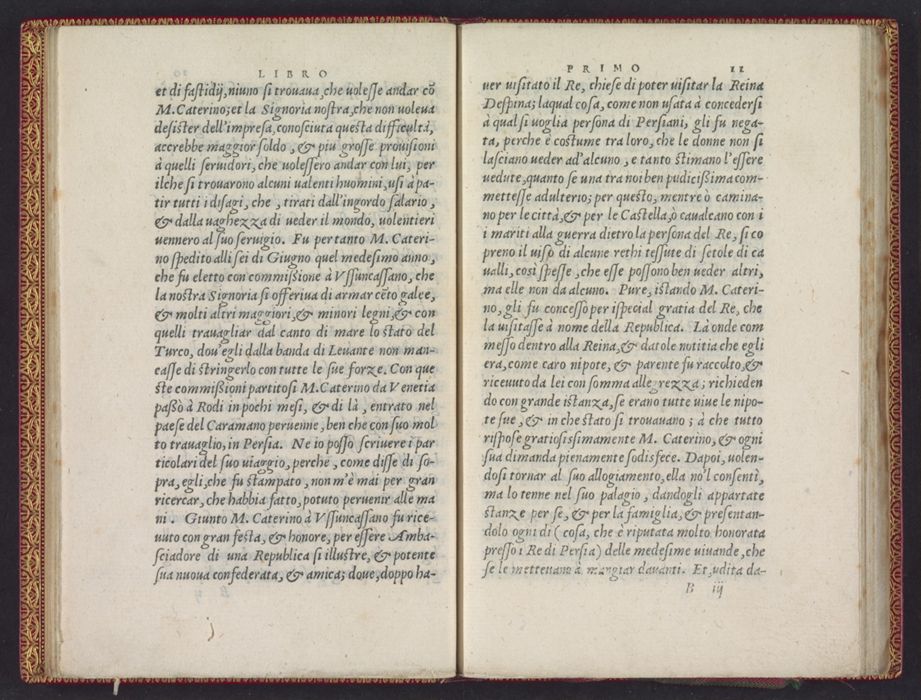 LIBRO
et di fastidij, niuno si trouaua, che uolesse andar cō
M. Caterino; et la Signoria nostra, che non uoleua
desister dell'impresa, conosciuta questa difficultà,
accrebbe maggior soldo, & piu grosse prouisioni
à quelli seruidori, che uolessero andar con lui, per
ilche si trouarono alcuni ualenti huomini, usi à pa-
tir tutti i disagi, che, tirati dall'ingordo salario,
& dalla uaghezza di ueder il mondo, uolentieri
uennero al suo seruigio. Fu per tanto M. Cateri-
no spedito alli sei di Giugno quel medesimo anno,
che fu eletto con commißione à Vssuncassano, che
la nostra Signoria si offeriua di armar cēto galee,
& molti altri maggiori, & minori legni, & con
quelli trauagliar dal canto di mare lo stato del
Turco, dou'egli dalla banda di Leuante non man-
casse di stringerlo con tutte le sue forze. Con que
ste commißioni partitosi M. Caterino da Venetia
paßò à Rodi in pochi mesi, & di là, entrato nel
paese del Caramano peruenne, ben che con suo mol
to trauaglio, in Persia. Ne io posso scriuere i par
ticolari del suo uiaggio, perche, come disse di so-
pra, egli, che fu stampato, non m'è mai per gran
ricercar, che habbia fatto, potuto peruenir alle ma
ni. Giunto M. Caterino à Vssuncassano fu rice-
uuto con gran festa, & honore, per essere Amba-
sciadore di una Republica si illustre, & potente
sua nuoua confederata, & amica; doue, doppo ha-
PRIMO 11
uer uisitato il Re, chiese di poter uisitar la Reina
Despina; laqual cosa, come non usata à concedersi
à qual si uoglia persona di Persiani, gli fu nega-
ta, perche è costume tra loro, che le donne non si
lasciano ueder ad'alcuno, e tanto stimano l'essere
uedute, quanto se una tra noi ben pudicißima com-
mettesse adulterio; per questo, mentre ò camina-
no per le città, & per le Castella, ò caualcano con i
i mariti alla guerra dietro la persona del Re, si co
preno il uiso di alcune rethi tessute di setole di ca
ualli, così spesse, che esse possono ben ueder altri,
ma elle non da alcuno. Pure, istando M. Cateri-
no, gli fu concesso per ispecial gratia del Re, che
la uisitasse à nome della Republica. Là onde com
messo dentro alla Reina, & datole notitia che egli
era, come caro nipote, & parente fu raccolto, &
riceuuto da lei con somma allegrezza; richieden
do con grande istanza, se erano tutte uiue le nipo-
te sue, & in che stato si trouauano; à che tutto
rispose gratiosissimamente M. Caterino, & ogni
sua dimanda pienamente sodisfece. Dapoi, uolen-
dosi tornar al suo allogiamento, ella no'l consentì,
ma lo tenne nel suo palagio, dandogli appartate
stanze per se, & per la famiglia, & presentan-
dolo ogni dì (cosa, che è riputata molto honorata
presso i Re di Persia) delle medesime uiuande, che
se le metteuano à mangiar dauanti. Et, udita da-
B iij